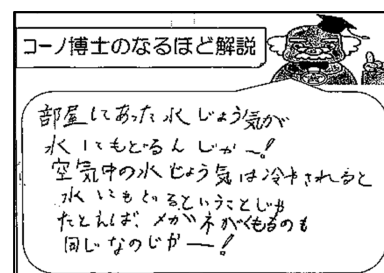 コーノ博士のなるほど解説
部屋にあった水じょう気が
水にもどるんじゃー!
空気中の水じょう気は冷やされると
水にもどるということじゃ
たとえば、メガネがくもるのも
同じなのじゃー!